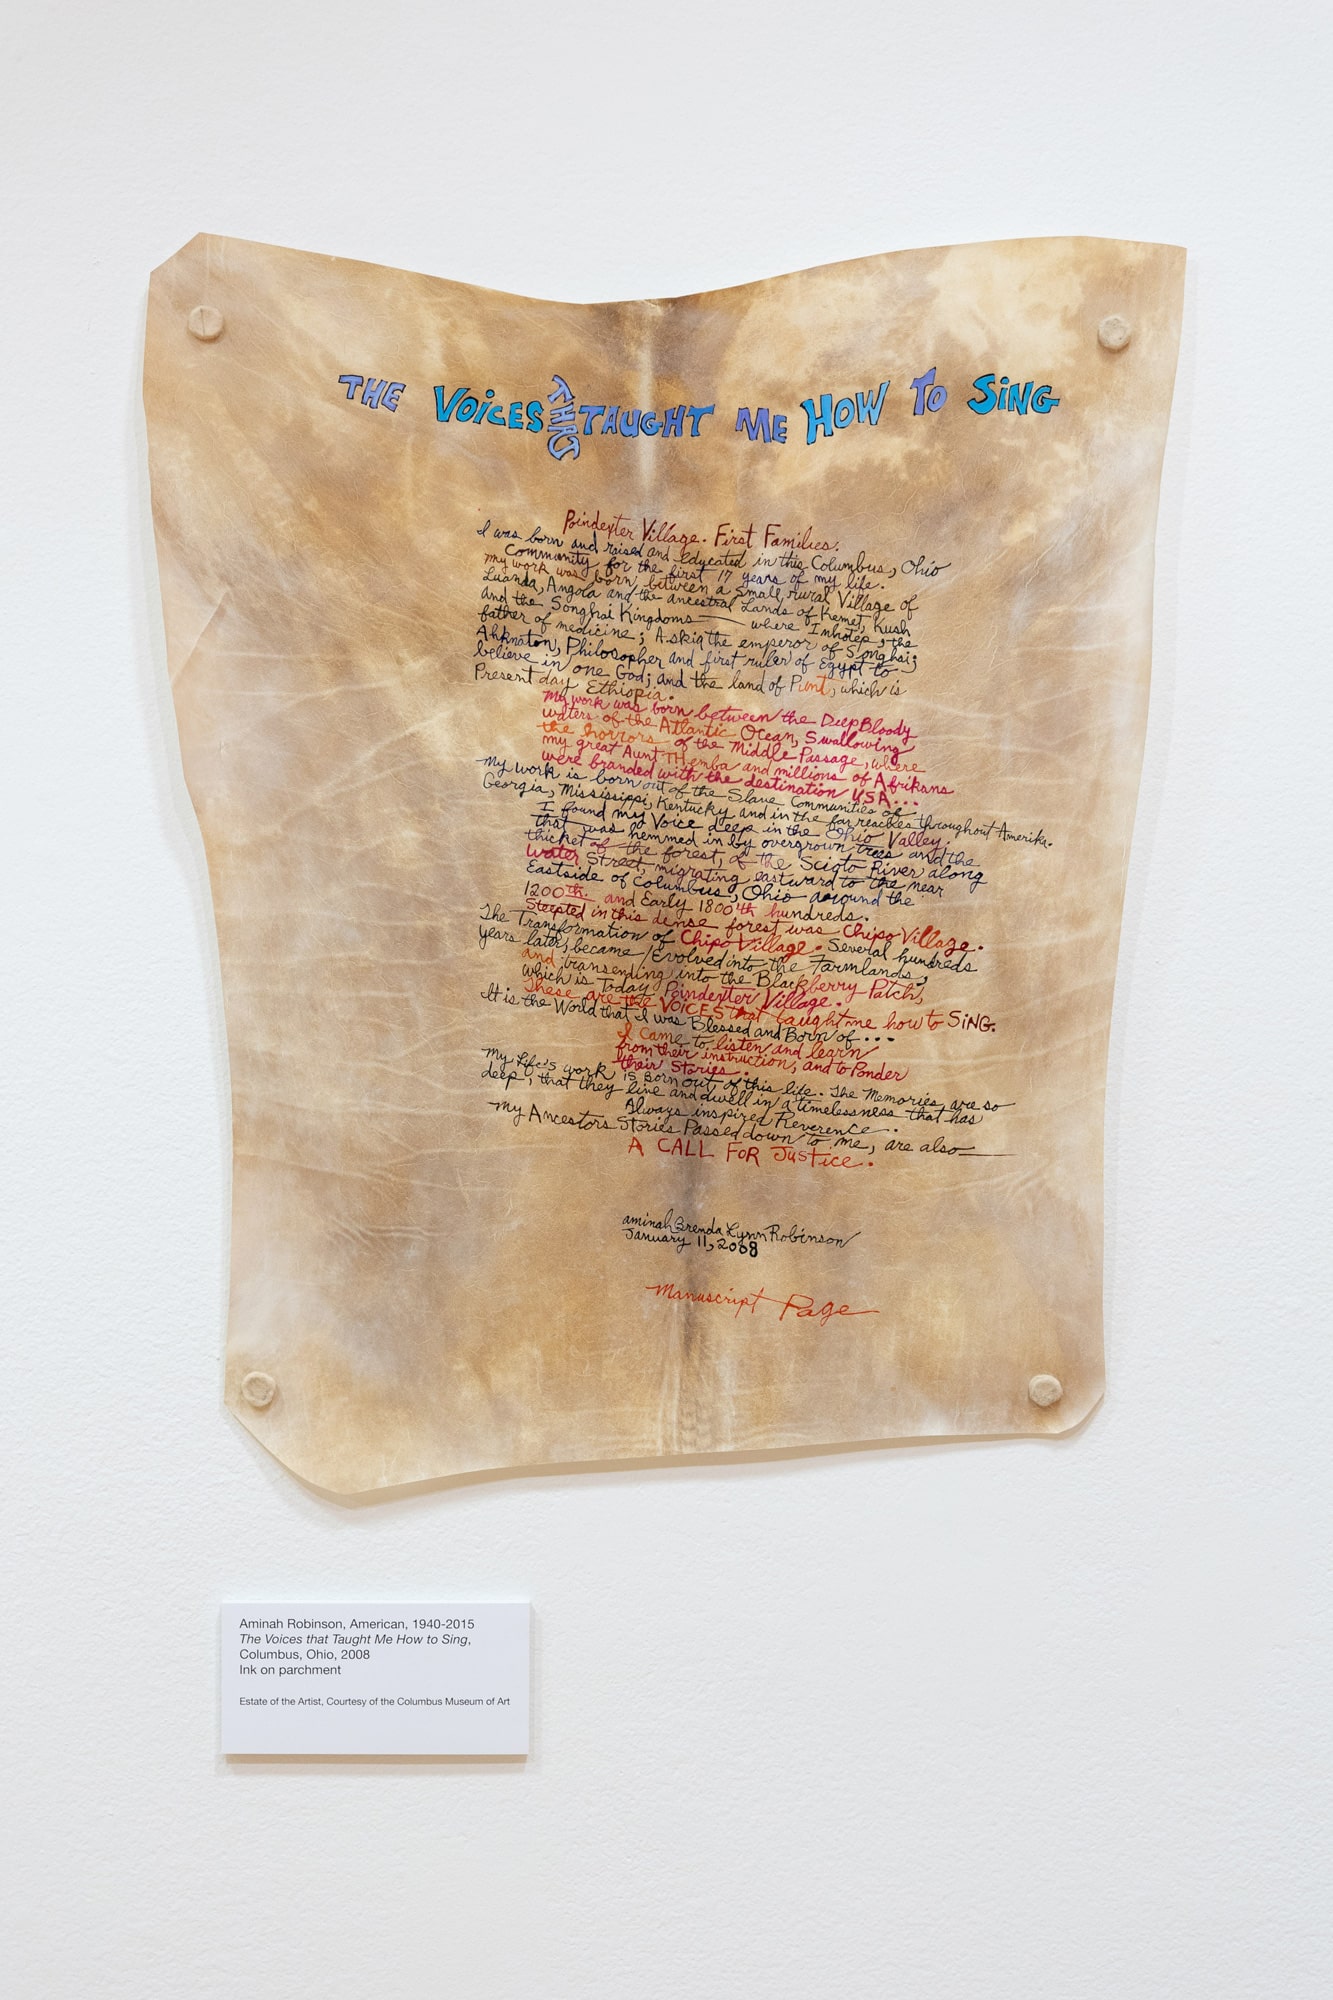 THE VOICES THAT TAUGHT ME HOW TO SING
Poindexter Village. First Families.
I was born and raised and educated in this Columbus, Ohio
Community for the first 17 years of my life.
My work was born between a small rural Village of
Luanda, Angola and the ancestral Lands of Kemet, Kush
and the Songhai Kingdoms — where Imhotep, the
father of medicine; Askia the emperor of Songhai;
Akhnaton, Philosopher and first ruler of Egypt to
believe in one God; and the land of Punt, which is
Present day Ethiopia.
My work was born between the Deep Bloody
waters of the Atlantic Ocean, Swallowing
the horrors of the Middle Passage, where
my great Aunt THemba and millions of Afrikans
were branded with the destination USA...
My work is born out of the Slave Communities of
Georgia, Mississippi, Kentucky and in the far reaches throughout Amerika.
I found my Voice deep in the Ohio Valley.
that was hemmed in by overgrown trees and the
thicket of the forest, of the Scioto River along
Water Street, migrating eastward to the near
Eastside of Columbus, Ohio around the
1200th and Early 1800th hundreds.
Steepted in this dense forest was Chipo Village.
The Transformation of Chipo Village. Several hundreds
years later, became/Evolved into the Farmlands,
and transending into the Blackberry Patch,
which is Today Poindexter Village.
These are the VOICES that taught me how to SING.
It is the World that I was Blessed and Born of...
I came to listen and learn
from their instruction, and to Ponder
their Stories.
My Life's work, is Born out of this life. The Memories are so
deep, that they live and dwell in a timelessness that has
Always inspired Reverence.
My Ancestors Stories Passed down to me, are also —
A CALL FOR JUSTICE.
aminah Brenda Lynn Robinson
January 11, 2008
Manuscript Page
Aminah Robinson, American, 1940-2015
The Voices that Taught Me How to Sing,
Columbus, Ohio, 2008
Ink on parchment
Estate of the Artist, Courtesy of the Columbus Museum of Art